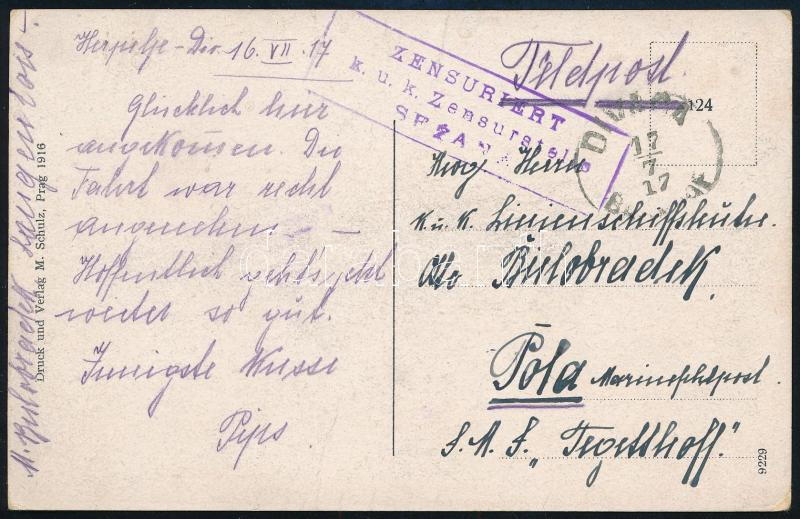 Herpelje-Div. 16. VII. 17
Glücklich hier
angekommen. Die
Fahrt war recht
angenehm. –
Hoffentlich gehts jetzt
weiter so gut.
Innigste Küsse
Pips
M. Bulobradek
Druck und Verlag M. Schulz, Prag 1916
ZENSURIERT
k. u. k. Zensurstelle
SEŽANA
Feldpost
124
DIVAČA
17
7
17
Herrn
k. u. k. Linienschiffsleutn.
Otto Bulobradek.
Pola Marinefeldpost.
S. M. S. „Tegetthoff."
9229